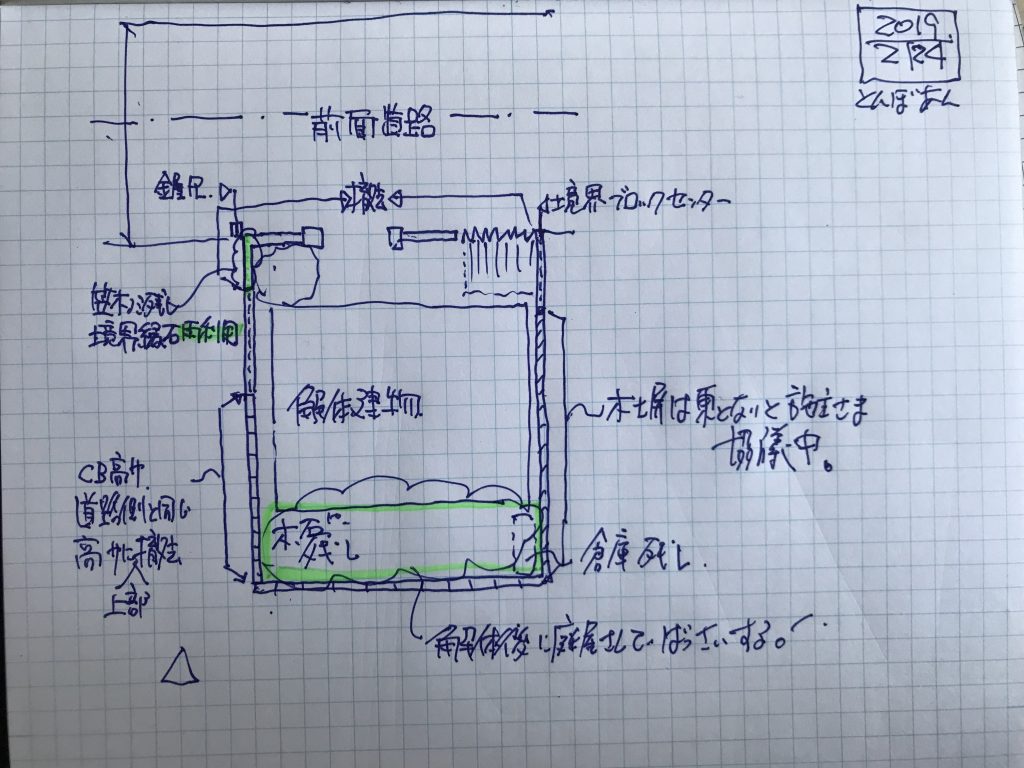 2019.
2/24
とんぼあん
前面道路
撤去
境界ブロックセンター
境界縁石再利用
解体建物
木塀は東どないと施主さま
協儀中。
CB高サ
道路側と同じ
高サに撤去
上部
木石
残し
倉庫残し.
解体後に庭屋さんでばっさいする。